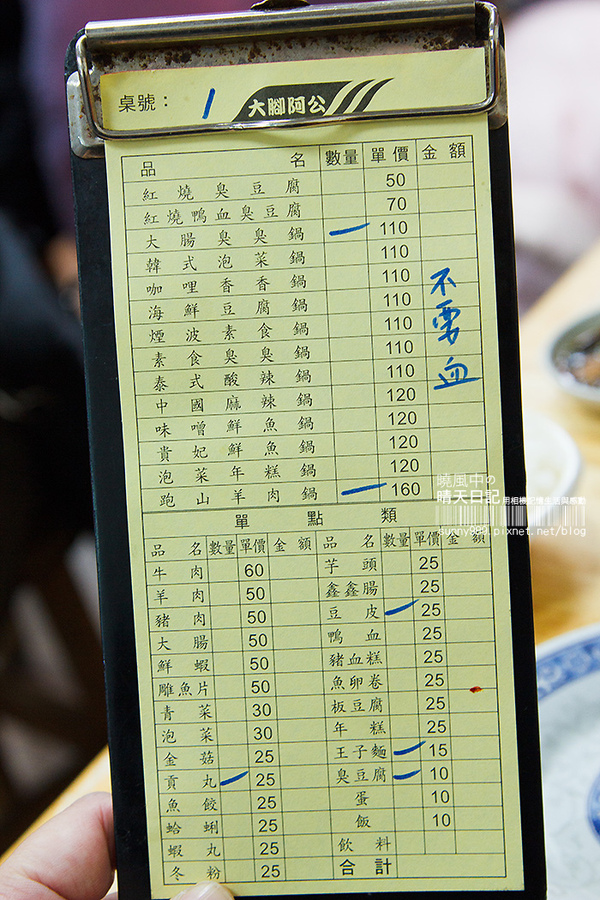 桌號： 1 大腳阿公
品名 數量 單價 金額
紅燒臭豆腐 50
紅燒鴨血臭豆腐 70
大腸臭臭鍋 一 110
韓式泡菜鍋 110
咖哩香香鍋 110
海鮮豆腐鍋 110
煙波素食鍋 110
素食臭臭鍋 110
泰式酸辣鍋 110
中國麻辣鍋 120
味噌鮮魚鍋 120
貴妃鮮魚鍋 120
泡菜年糕鍋 120
跑山羊肉鍋 一 160
不要血
單點類
品名 數量 單價 金額 品名 數量 單價 金額
牛肉 60 芋頭 25
羊肉 50 鑫鑫腸 25
豬肉 50 豆皮 一 25
大腸 50 鴨血 25
鮮蝦 50 豬血糕 25
雕魚片 50 魚卵卷 25
青菜 30 板豆腐 25
泡菜 30 年糕 25
金菇 25 王子麵 一 15
貢丸 一 25 臭豆腐 一 10
魚餃 25 蛋 10
蛤蜊 25 飯 10
蝦丸 25 飲料
冬粉 25 合計
曉風中の
晴天日記 用相機記憶生活與感動
sunny981.pixnet.net/blog